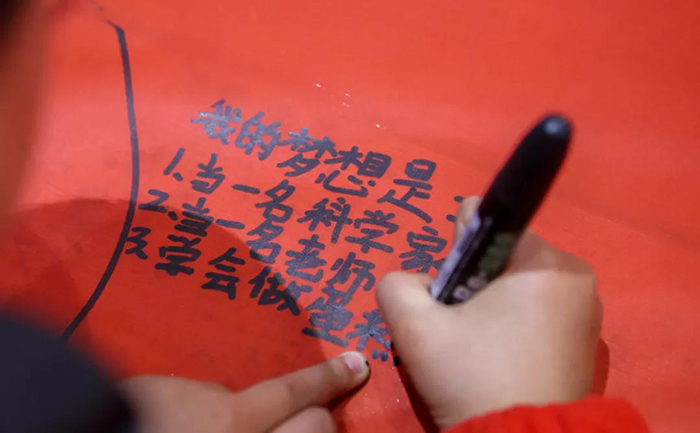 我的梦想是:
1.当一名科学家
2.当一名老师
3.学会做